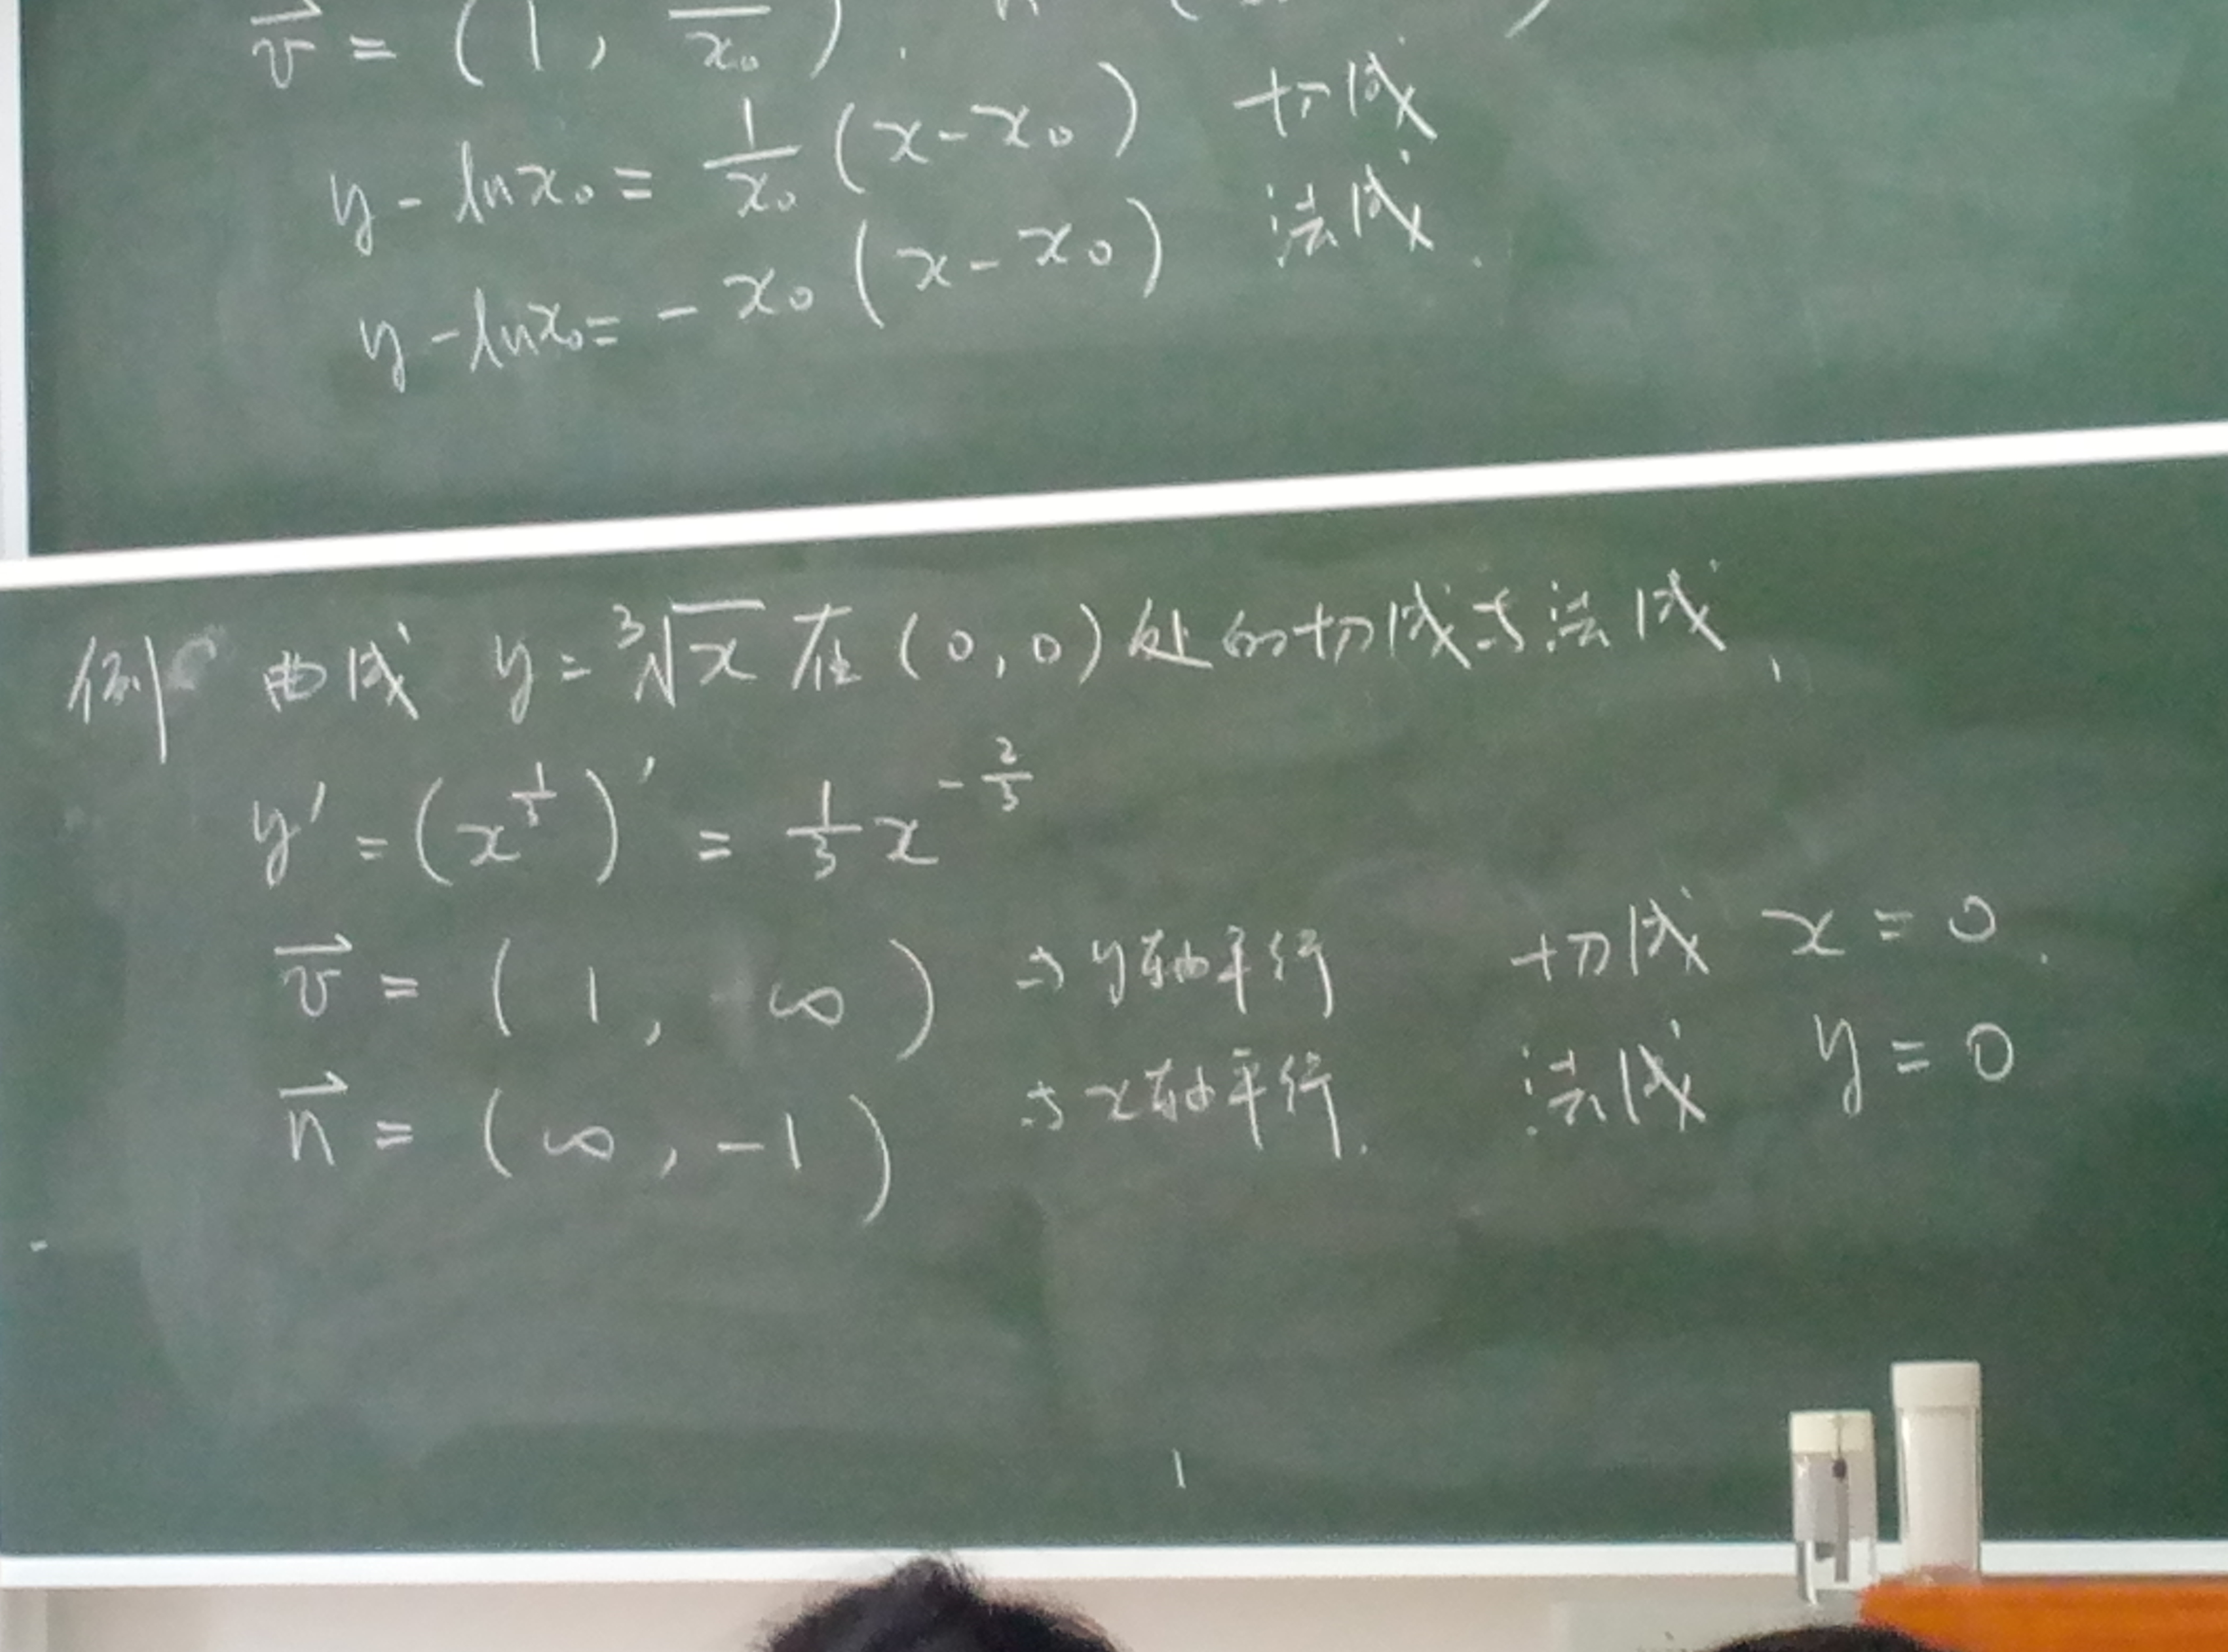 v⃗ = (1, 1/x₀).
y - ln x₀ = 1/x₀ (x - x₀) 切线
y - ln x₀ = - x₀ (x - x₀) 法线.
例 曲线 y = ³√x 在 (0, 0) 处的切线与法线.
y' = (x^{1/3})' = 1/3 x^{-2/3}
v⃗ = (1, ∞) 与y轴平行 切线 x = 0.
n⃗ = (∞, -1) 与x轴平行. 法线 y = 0